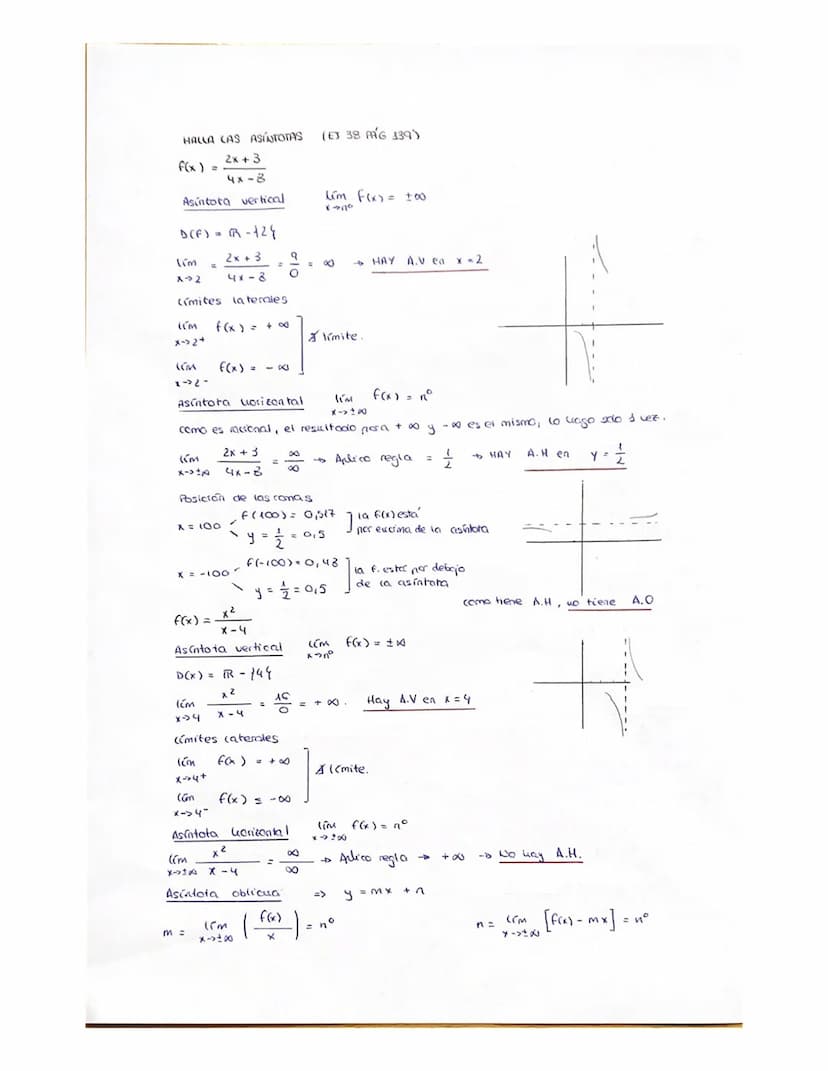 HALLA LAS ASÍNTOTAS (EJ 38 PÁG 139)
f(x) = (2x + 3)/(4x - 8)
Asíntota vertical lím x→nº f(x) = ±∞
D(F) = ℝ - {2}
lím x→2 = (2x + 3)/(4x - 8) = 9/0 = ∞ → HAY A.V en x = 2
Límites laterales
lím x→2⁺ f(x) = +∞
∄ límite.
lím x→2⁻ f(x) = -∞
Asíntota horizontal lím x→±∞ f(x) = nº
como es racional, el resultado para +∞ y -∞ es el mismo, lo hago solo 1 vez.
lím x→±∞ (2x + 3)/(4x - 8) = ∞/∞ → Aplico regla = 1/2 → HAY A.H en y = 1/2
Posición de las ramas
x = 100 f(100) = 0,517 y = 1/2 = 0,5 ] la f(x) está por encima de la asíntota
x = -100 f(-100) = 0,48 y = 1/2 = 0,5 ] la f. está por debajo de la asíntota
como tiene A.H, no tiene A.O
f(x) = x²/(x - 4)
Asíntota vertical lím x→nº f(x) = ±∞
D(x) = ℝ - {4}
lím x→4 x²/(x - 4) = 16/0 = +∞. Hay A.V en x = 4
Límites laterales
lím x→4⁺ f(x) = +∞
∄ límite.
lím x→4⁻ f(x) = -∞
Asíntota horizontal lím x→±∞ f(x) = nº
lím x→±∞ x²/(x - 4) = ∞/∞ → Aplico regla → +∞ → No hay A.H.
Asíntota oblicua => y = mx + n
m = lím x→±∞ (f(x)/x) = nº n = lím x→±∞ [f(x) - mx] = nº